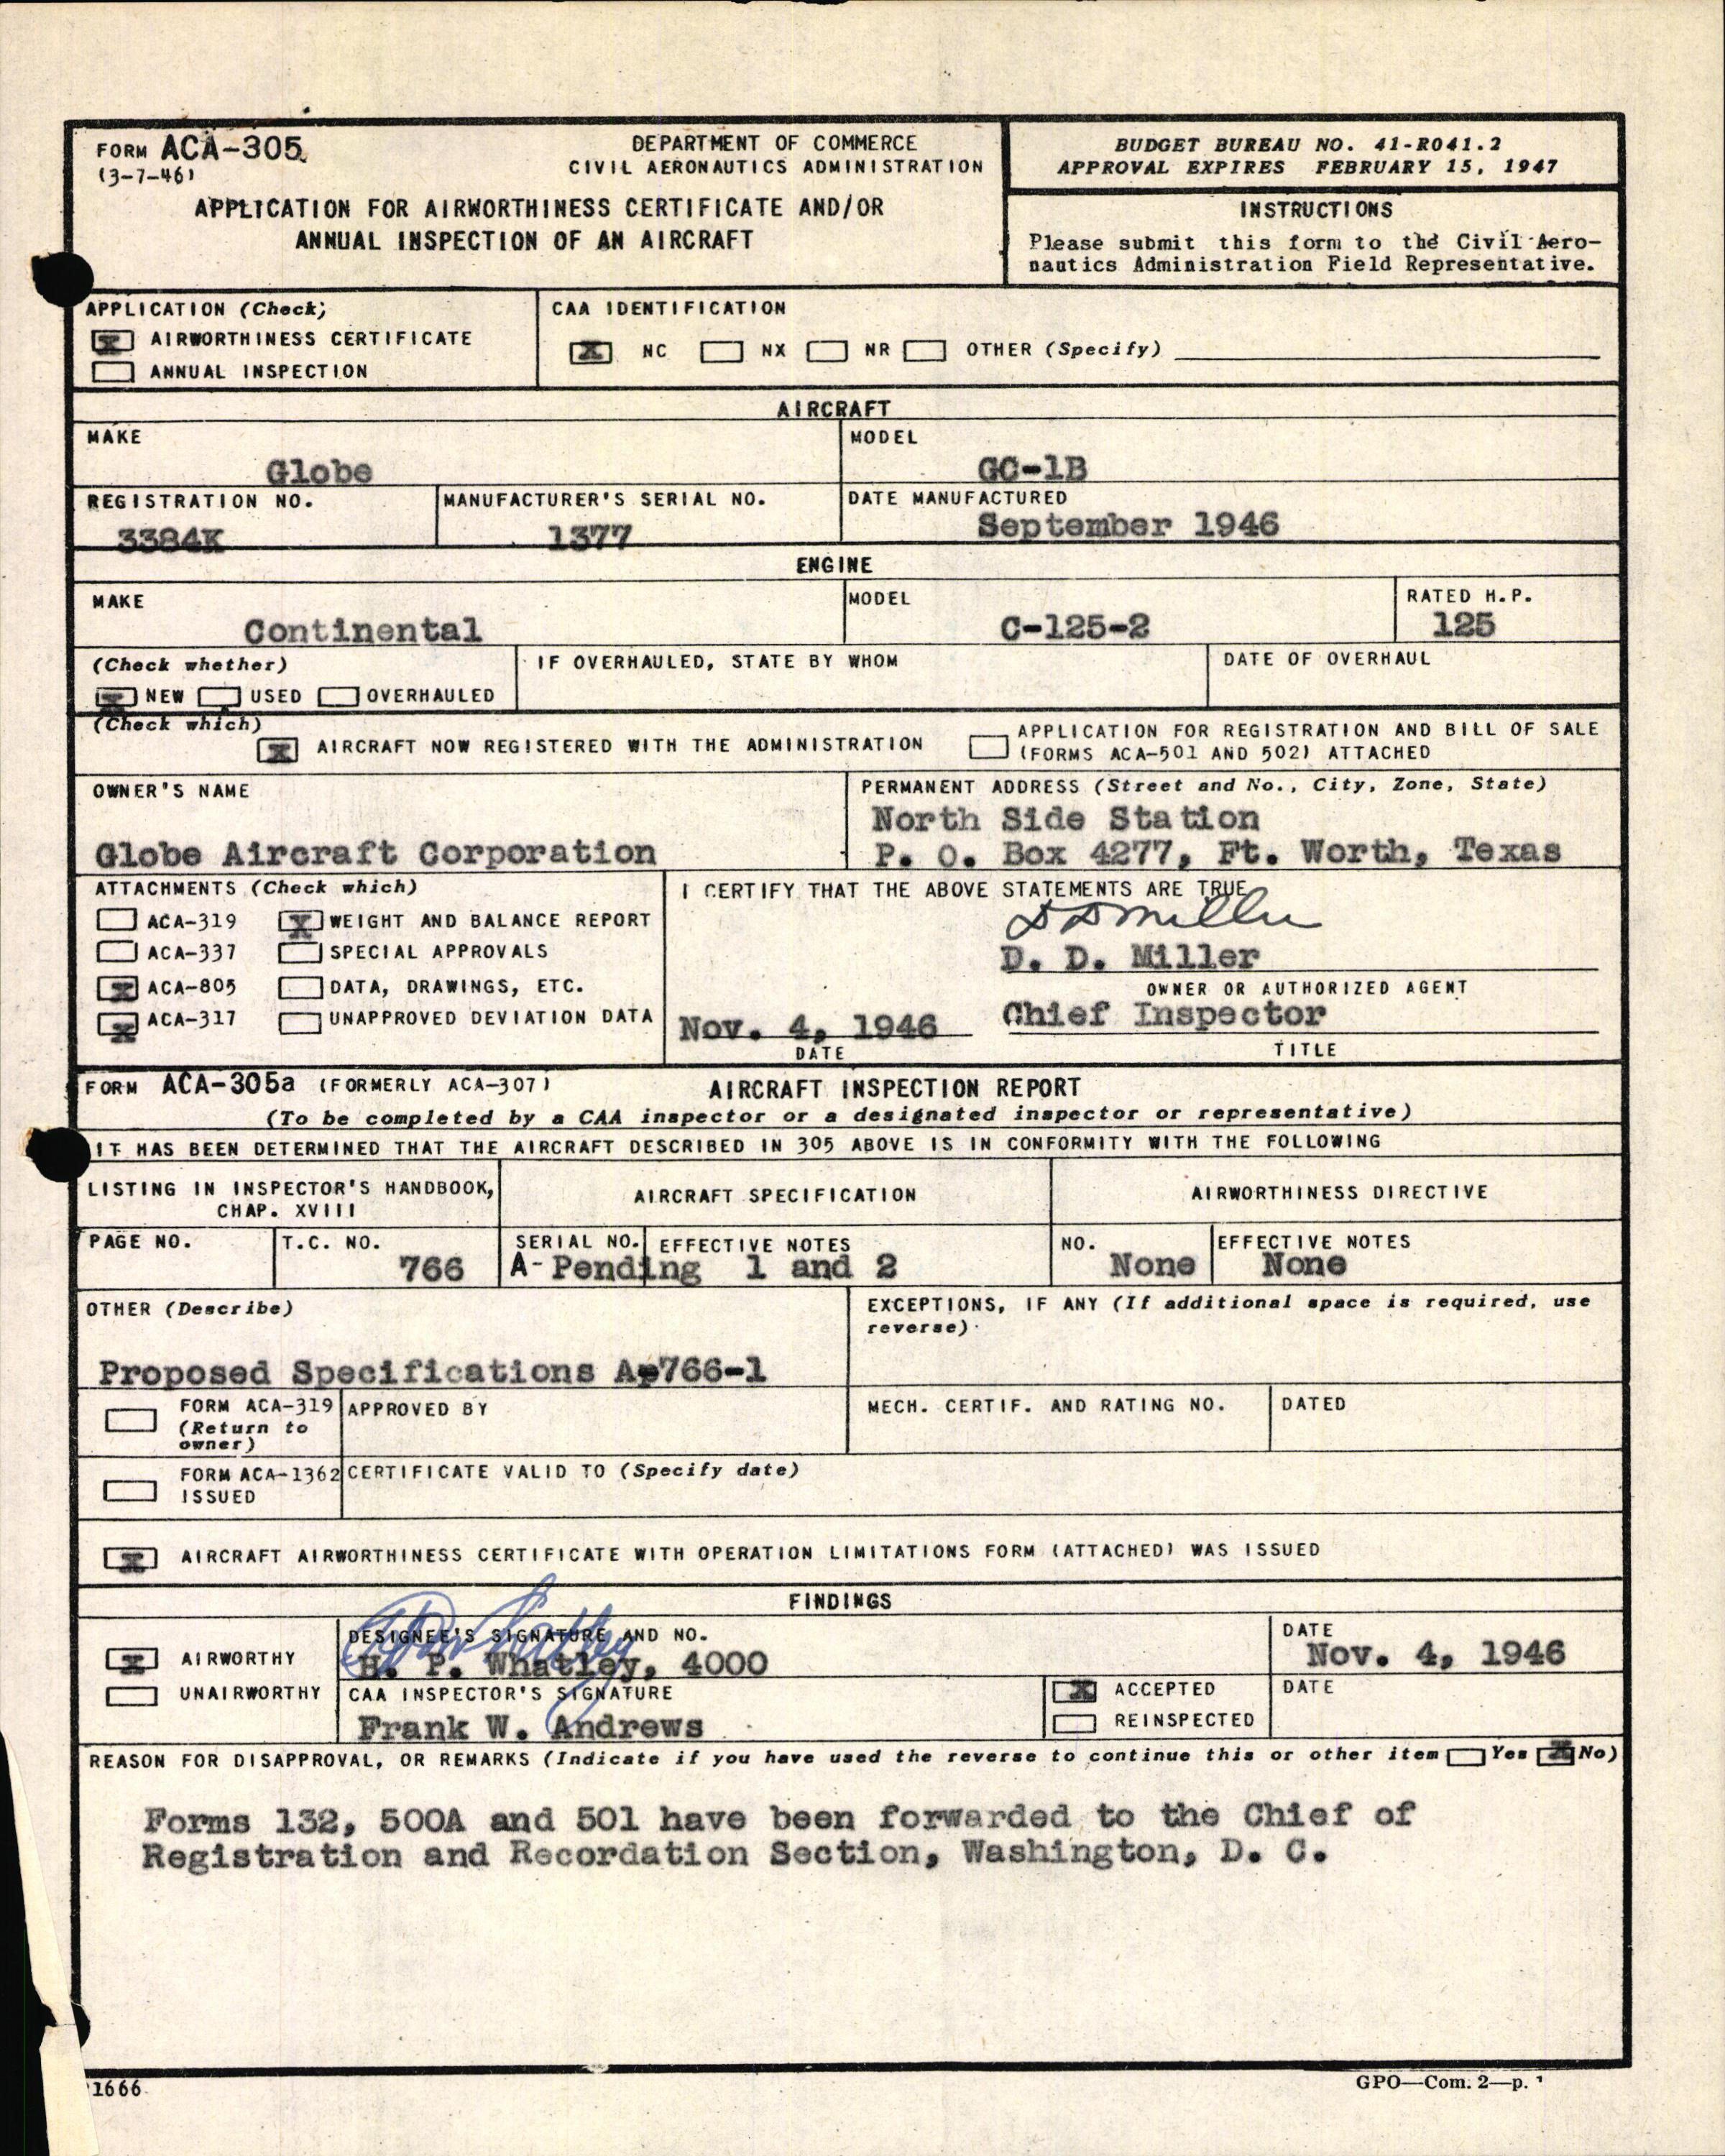 FORM ACA-305
(3-7-46)
DEPARTMENT OF COMMERCE
CIVIL AERONAUTICS ADMINISTRATION
APPLICATION FOR AIRWORTHINESS CERTIFICATE AND/OR
ANNUAL INSPECTION OF AN AIRCRAFT
BUDGET BUREAU NO. 41-R041.2
APPROVAL EXPIRES FEBRUARY 15, 1947
INSTRUCTIONS
Please submit this form to the Civil Aero-
nautics Administration Field Representative.
APPLICATION (Check)
X AIRWORTHINESS CERTIFICATE
ANNUAL INSPECTION
CAA IDENTIFICATION
X NC NX NR OTHER (Specify)
AIRCRAFT
MAKE
Globe
MODEL
GC-1B
REGISTRATION NO.
3384K
MANUFACTURER'S SERIAL NO.
1377
DATE MANUFACTURED
September 1946
ENGINE
MAKE
Continental
MODEL
C-125-2
RATED H.P.
125
(Check whether)
X NEW USED OVERHAULED
IF OVERHAULED, STATE BY WHOM
DATE OF OVERHAUL
(Check which)
X AIRCRAFT NOW REGISTERED WITH THE ADMINISTRATION
APPLICATION FOR REGISTRATION AND BILL OF SALE
(FORMS ACA-501 AND 502) ATTACHED
OWNER'S NAME
Globe Aircraft Corporation
PERMANENT ADDRESS (Street and No., City, Zone, State)
North Side Station
P. O. Box 4277, Ft. Worth, Texas
ATTACHMENTS (Check which)
ACA-319 X WEIGHT AND BALANCE REPORT
ACA-337 SPECIAL APPROVALS
X ACA-805 DATA, DRAWINGS, ETC.
X ACA-317 UNAPPROVED DEVIATION DATA
I CERTIFY THAT THE ABOVE STATEMENTS ARE TRUE
D D Miller
D. D. Miller
OWNER OR AUTHORIZED AGENT
Nov. 4, 1946
DATE
Chief Inspector
TITLE
FORM ACA-305a (FORMERLY ACA-307) AIRCRAFT INSPECTION REPORT
(To be completed by a CAA inspector or a designated inspector or representative)
IT HAS BEEN DETERMINED THAT THE AIRCRAFT DESCRIBED IN 305 ABOVE IS IN CONFORMITY WITH THE FOLLOWING
LISTING IN INSPECTOR'S HANDBOOK,
CHAP. XVIII
AIRCRAFT SPECIFICATION
AIRWORTHINESS DIRECTIVE
PAGE NO.
T.C. NO.
766
SERIAL NO. EFFECTIVE NOTES
A-Pending 1 and 2
NO.
None
EFFECTIVE NOTES
None
OTHER (Describe)
Proposed Specifications A-766-1
EXCEPTIONS, IF ANY (If additional space is required, use
reverse)
FORM ACA-319
(Return to
owner)
APPROVED BY
MECH. CERTIF. AND RATING NO.
DATED
FORM ACA-1362
ISSUED
CERTIFICATE VALID TO (Specify date)
X AIRCRAFT AIRWORTHINESS CERTIFICATE WITH OPERATION LIMITATIONS FORM (ATTACHED) WAS ISSUED
FINDINGS
X AIRWORTHY
UNAIRWORTHY
DESIGNEE'S SIGNATURE AND NO.
H P Whatley
H. P. Whatley, 4000
DATE
Nov. 4, 1946
CAA INSPECTOR'S SIGNATURE
Frank W. Andrews
X ACCEPTED
REINSPECTED
DATE
REASON FOR DISAPPROVAL, OR REMARKS (Indicate if you have used the reverse to continue this or other item Yes X No)
Forms 132, 500A and 501 have been forwarded to the Chief of
Registration and Recordation Section, Washington, D. C.
1666
GPO—Com. 2—p.